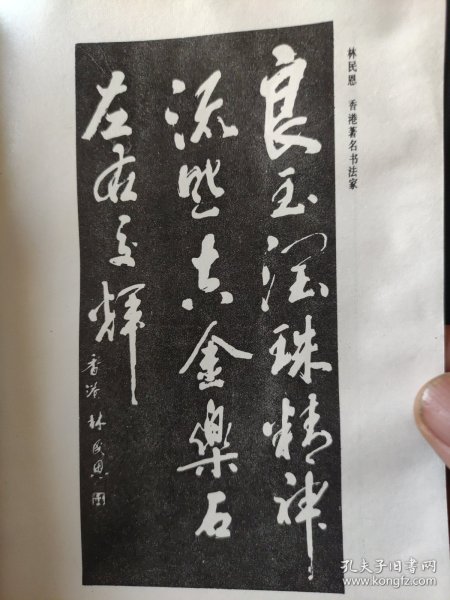 林民恩 香港著名书法家
良玉潤珠精神
流照吉金樂石
左右交輝
香港林民恩
孔夫子旧书网
www.kongfz.com